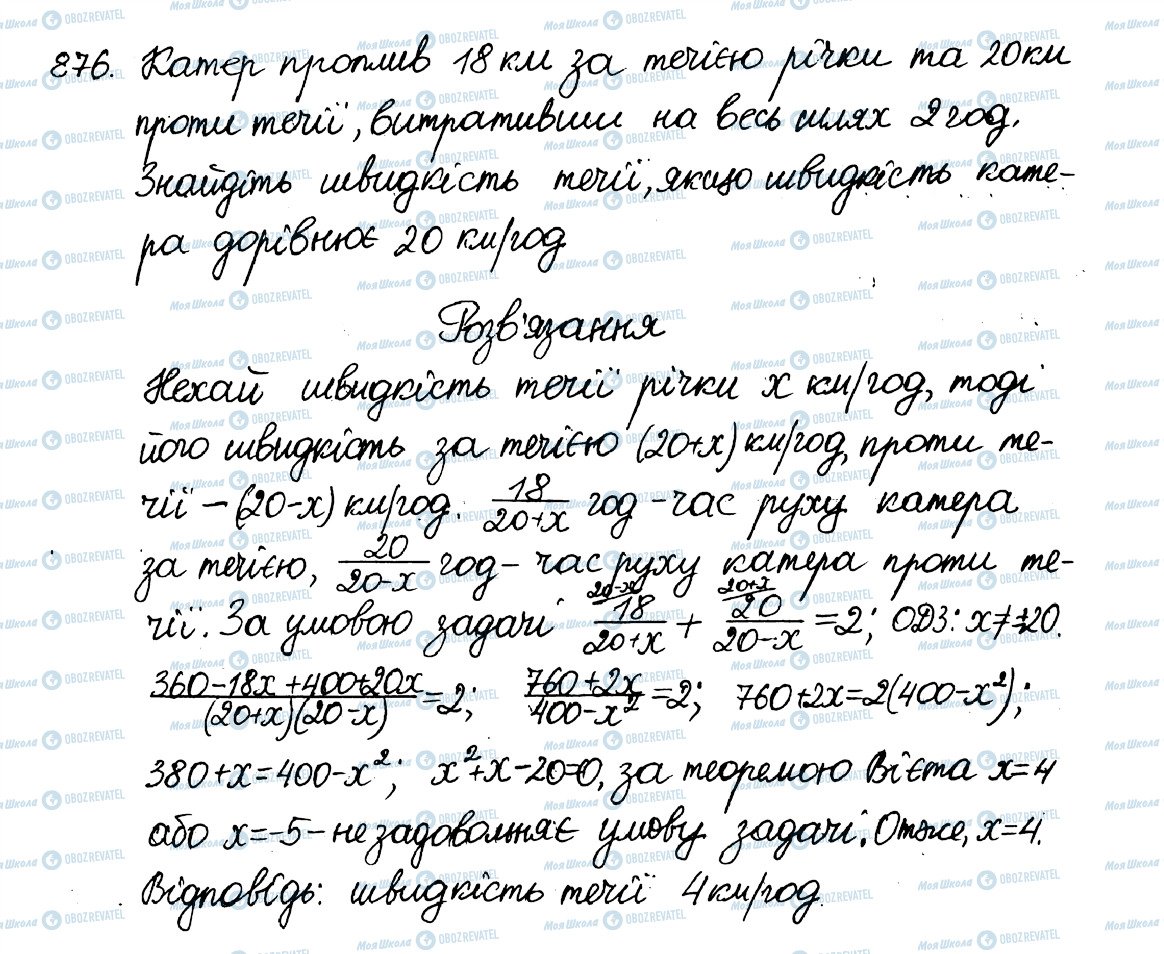 876. Катер проплив 18 км за течією річки та 20 км
проти течії, витративши на весь шлях 2 год.
Знайдіть швидкість течії, якщо швидкість кате-
ра дорівнює 20 км/год
Розв'язання
Нехай швидкість течії річки x км/год, тоді
його швидкість за течією (20+x) км/год, проти те-
чії – (20-x) км/год. 18/(20+x) год – час руху катера
за течією, 20/(20-x) год – час руху катера проти те-
чії. За умовою задачі (20-x) 18/(20+x) + (20+x) 20/(20-x) = 2; ОДЗ: x≠±20.
(360-18x+400+20x)/((20+x)(20-x)) = 2; (760+2x)/(400-x²) = 2; 760+2x=2(400-x²);
380+x=400-x²; x²+x-20=0, за теоремою Вієта x=4
або x=-5 – не задовольняє умову задачі. Отже, x=4.
Відповідь: швидкість течії 4 км/год.
Моя Школа OBOZREVATEL